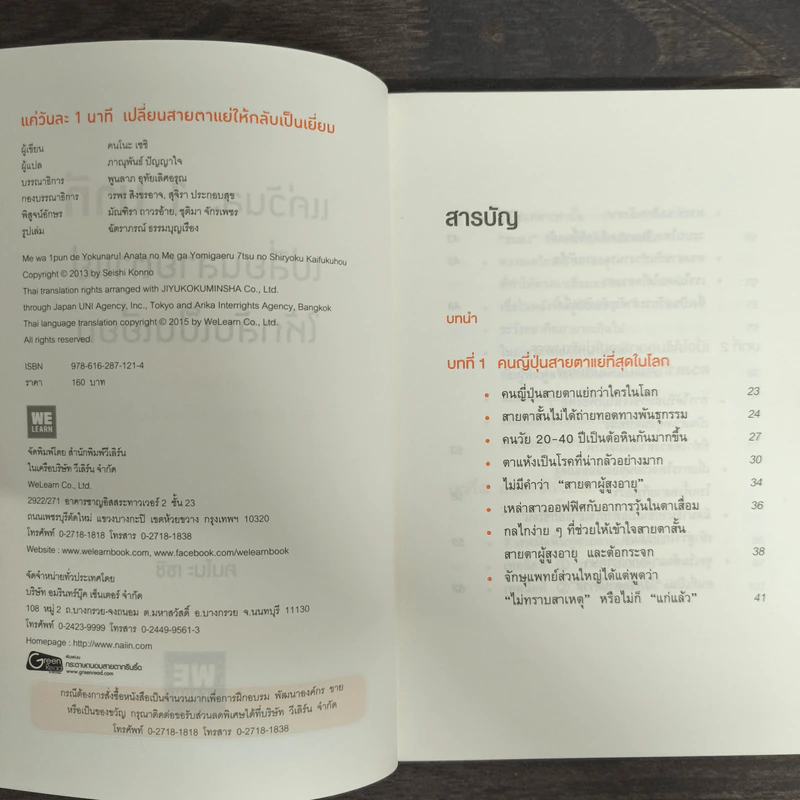 แค่วันละ 1 นาที เปลี่ยนสายตาแย่ให้กลับเป็นเยี่ยม
ผู้เขียน คนโนะ เซชิ
ผู้แปล ภาณุพันธ์ ปัญญาใจ
บรรณาธิการ พูนลาภ อุทัยเลิศอรุณ
กองบรรณาธิการ วรพร สิงขรอาจ, สุจิรา ประกอบสุข
พิสูจน์อักษร มัณฑิรา ถาวรอ้าย, ชุติมา จักรเพชร
รูปเล่ม ฉัตราภรณ์ ธรรมบุญเรือง
Me wa 1pun de Yokunaru! Anata no Me ga Yomigaeru 7tsu no Shiryoku Kaifukuhou
Copyright © 2013 by Seishi Konno
Thai translation rights arranged with JIYUKOKUMINSHA Co., Ltd.
through Japan UNI Agency, Inc., Tokyo and Arika Interrights Agency, Bangkok
Thai language translation copyright © 2015 by WeLearn Co., Ltd.
All rights reserved.
ISBN 978-616-287-121-4
ราคา 160 บาท
WE
LEARN
จัดพิมพ์โดย สำนักพิมพ์วีเลิร์น
ในเครือบริษัท วีเลิร์น จำกัด
WeLearn Co., Ltd.
2922/271 อาคารชาญอิสสระทาวเวอร์ 2 ชั้น 23
ถนนเพชรบุรีตัดใหม่ แขวงบางกะปิ เขตห้วยขวาง กรุงเทพฯ 10320
โทรศัพท์ 0-2718-1818 โทรสาร 0-2718-1838
Website : www.welearnbook.com, www.facebook.com/welearnbook
จัดจำหน่ายทั่วประเทศโดย
บริษัท อมรินทร์บุ๊ค เซ็นเตอร์ จำกัด
108 หมู่ 2 ถ.บางกรวย-จงถนอม ต.มหาสวัสดิ์ อ.บางกรวย จ.นนทบุรี 11130
โทรศัพท์ 0-2423-9999 โทรสาร 0-2449-9561-3
Homepage : http://www.naiin.com
Green Read
กระดาษถนอมสายตากรีนรี้ด
www.greenread.com
กรณีต้องการสั่งซื้อหนังสือเป็นจำนวนมากเพื่อการฝึกอบรม พัฒนาองค์กร ขาย
หรือเป็นของขวัญ กรุณาติดต่อขอรับส่วนลดพิเศษได้ที่บริษัท วีเลิร์น จำกัด
โทรศัพท์ 0-2718-1818 โทรสาร 0-2718-1838
สารบัญ
บทนำ
บทที่ 1 คนญี่ปุ่นสายตาแย่ที่สุดในโลก
• คนญี่ปุ่นสายตาแย่กว่าใครในโลก 23
• สายตาสั้นไม่ได้ถ่ายทอดทางพันธุกรรม 24
• คนวัย 20-40 ปีเป็นต้อหินกันมากขึ้น 27
• ตาแห้งเป็นโรคที่น่ากลัวอย่างมาก 30
• ไม่มีคำว่า “สายตาผู้สูงอายุ” 34
• เหล่าสาวออฟฟิศกับอาการวุ้นในตาเสื่อม 36
• กลไกง่าย ๆ ที่ช่วยให้เข้าใจสายตาสั้น
สายตาผู้สูงอายุ และต้อกระจก 38
• จักษุแพทย์ส่วนใหญ่ได้แต่พูดว่า
“ไม่ทราบสาเหตุ” หรือไม่ก็ “แก่แล้ว” 41